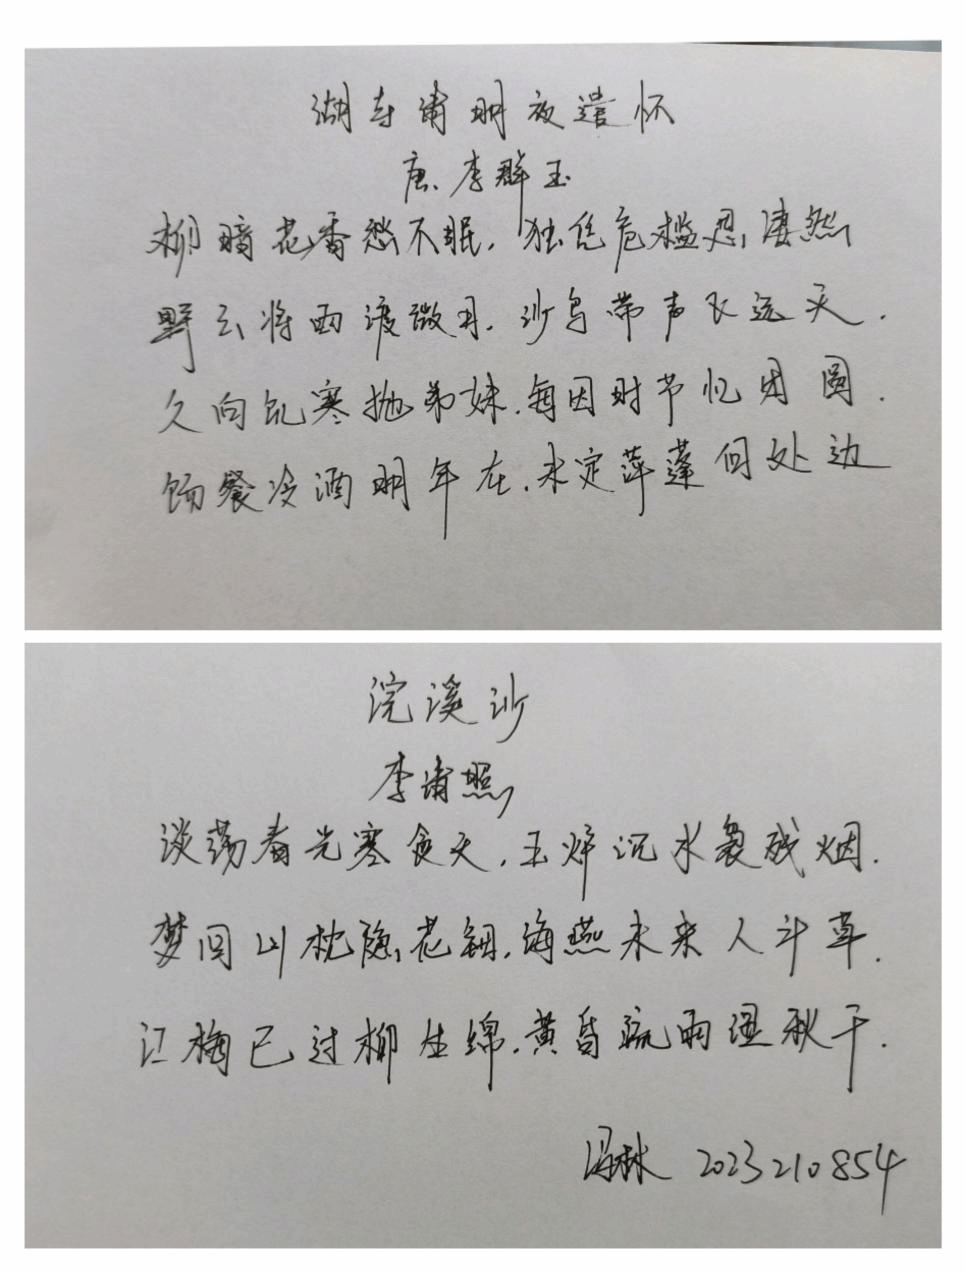 湖寺清明夜遣怀
唐、李群玉
柳暗花香愁不眠，独凭危槛思凄然
野云将雨渡微月，沙鸟带声飞远天．
久向饥寒抛弟妹，每因时节忆团圆．
饧餐冷酒明年在，未定萍蓬何处边
浣溪沙
李清照
淡荡春光寒食天，玉炉沉水袅残烟．
梦回山枕隐花钿，海燕未来人斗草．
江梅已过柳生绵，黄昏疏雨湿秋千．
冯林 2023210854